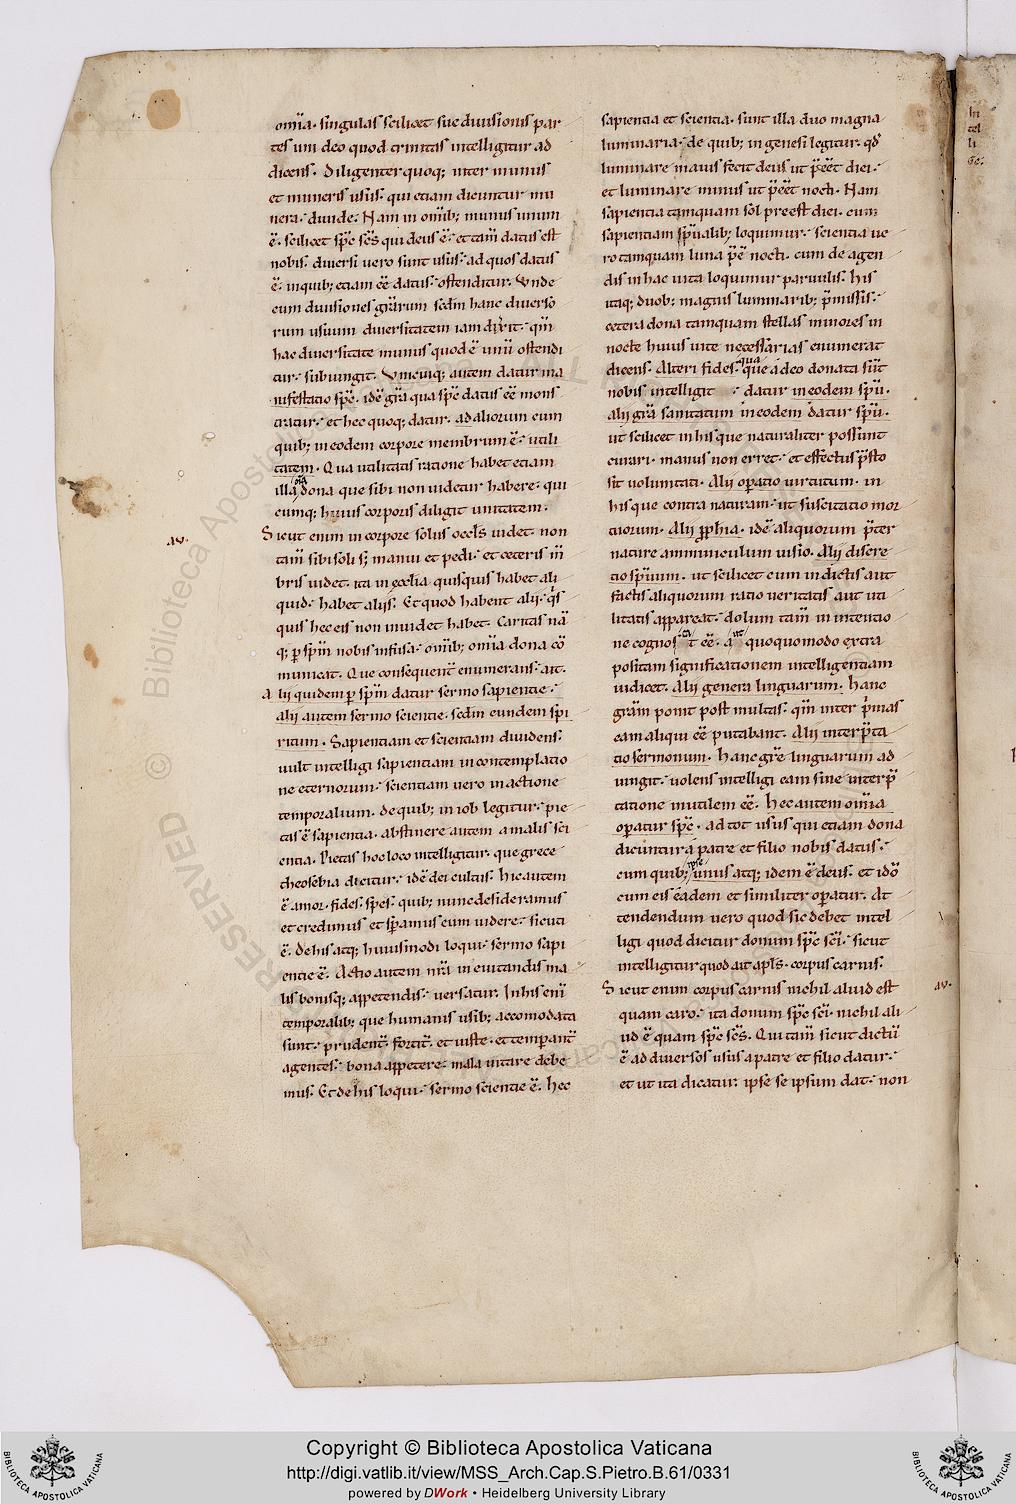 om̄ia. singulas scilicet sue diuisionis par
tes uni deo quod trinitas intelligitur ad
dicens. Diligenter quoq; inter munus
et muneris usus. qui etiam dicuntur mu
nera. diuide. Nam in om̄ib; munus unum
ē. scilicet sp̄c sc̄s qui deus ē. et tam̄ datus est
nobis. diuersi uero sunt usus. ad quos datus
ē. in quib; etiam ēē datus. ostenditur. Unde
cum diuisiones gr̄arum sc̄dm hanc diuerso
rum usuum diuersitatem iam dixit. qm̄
hac diuersitate munus quod ē unū ostendi
tur. subiungit. Unicuiq; autem datur ma
nifestatio sp̄c. idē gr̄a qua sp̄c datus ēē mons
tratur. et hec quoq; datur. ad aliorum cum
quib; in eodem corpore membrum ē. utili
tatem. Qua utilitatis ratione habet etiam
illa om̄a dona que sibi non uidetur habere. qui
cumq; huius corporis diligit unitatem.
au. Sicut enim in corpore solus ocl̄s uidet. non
tam̄ sibi soli s; manui et pedi. et ceteris m̄
bris uidet. ita in eccl̄ia quisquis habet ali
quid. habet alijs. Et quod habent alij. q̄s
quis hec eis non inuidet habet. Caritas nā
q; p sp̄m nobis infusa. om̄ib; om̄ia dona cō
municat. Que consequent̄ enumerans. ait.
Alii quidem p sp̄m datur sermo sapientie.
alij autem sermo scientie. sc̄dm eundem spi
ritum. Sapientiam et scientiam diuidens.
uult intelligi sapientiam in contemplatio
ne eternorum. scientiam uero in actione
temporalium. de quib; in iob legitur. pie
tas ē sapientia. abstinere autem a malis sci
entia. Pietas hoc loco intelligitur. que grece
theosebia dicitur. idē dei cultus. Hic autem
ē amor. fides. spes. quib; nunc desideramus
et credimus et sp̄amus eum uidere. sicuti
ē. de his atq; huiusmodi loqui. sermo sapi
entie ē. Actio autem nr̄a in euitandis ma
lis bonisq; appetendis. uersatur. In his enī
temporalib; que humanis usib; accomodata
sunt. prudent̄. fortit̄. et iuste. et temp̄ant̄
agentes. bona appetere. mala uitare debe
mus. Et de his loqui. sermo scientie ē. Hec
sapientia et scientia. sunt illa duo magna
luminaria. de quib; in genesi legitur. qd̄
luminare maius fecit deus ut p̄eēt diei.
et luminare minus ut p̄eēt nocti. Nam
sapientia tamquam sol preest diei. cum
sapientiam sp̄ualib; loquimur. scientia ue
ro tamquam luna p̄ē nocti. cum de agen
dis in hac uita loquimur paruulis. His
itaq; duob; magnis luminarib; p̄missis.
cetera dona tamquam stellas minores in
nocte huius uite necessarias enumerat
dicens. Alteri fides. qua que a deo donata sūt
nobis intelligit. datur in eodem sp̄u.
alij gr̄a sanitatum in eodem datur sp̄u.
ut scilicet in his que naturaliter possunt
curari. manus non erret. et effectus p̄sto
sit uoluntati. Alij op̄atio uirtutum. in
his que contra naturam. ut suscitatio mor
tuorum. Alij pph̄ia. idē aliquorum p̄ter
nature amminiculum uisio. Alij discre
tio sp̄uum. ut scilicet cum in dictis aut
factis aliquorum ratio ueritatis aut uti
litatis appareat. dolum tam̄ in intentio
ne cognoscat ēē. aut quoquomodo extra
positam significationem intelligentiam
uidicet. Alij genera linguarum. hanc
gr̄am ponit post multas. qm̄ inter p̄mas
eam aliqui ēē putabant. Alij interp̄ta
tio sermonum. Hanc gr̄e linguarum ad
iungit. uolens intelligi eam sine interp̄
tatione inutilem ēē. Hec autem om̄ia
op̄atur sp̄c. ad tot usus qui etiam dona
dicuntur a patre et filio nobis datus.
cum quib; ipse unus atq; idem ē deus. et idō
cum eis eadem et similiter op̄atur. At
tendendum uero quod sic debet intel
ligi quod dicitur donum sp̄c sc̄i. sicut
intelligitur quod ait apl̄s. corpus carnis.
Sicut enim corpus carnis nichil aliud est au.
quam caro. ita donum sp̄c sc̄i. nichil ali
ud ē quam sp̄c sc̄s. Qui tam̄ sicut dictū
ē ad diuersos usus a patre et filio datur.
et ut ita dicatur. ipse se ipsum dat. non
In
tel
li
ge.
RESERVED © Biblioteca Apostolica
Copyright © Biblioteca Apostolica Vaticana
http://digi.vatlib.it/view/MSS_Arch.Cap.S.Pietro.B.61/0331
powered by DWork • Heidelberg University Library
BIBLIOTECA APOSTOLICA VATICANA
BIBLIOTECA APOSTOLICA VATICANA